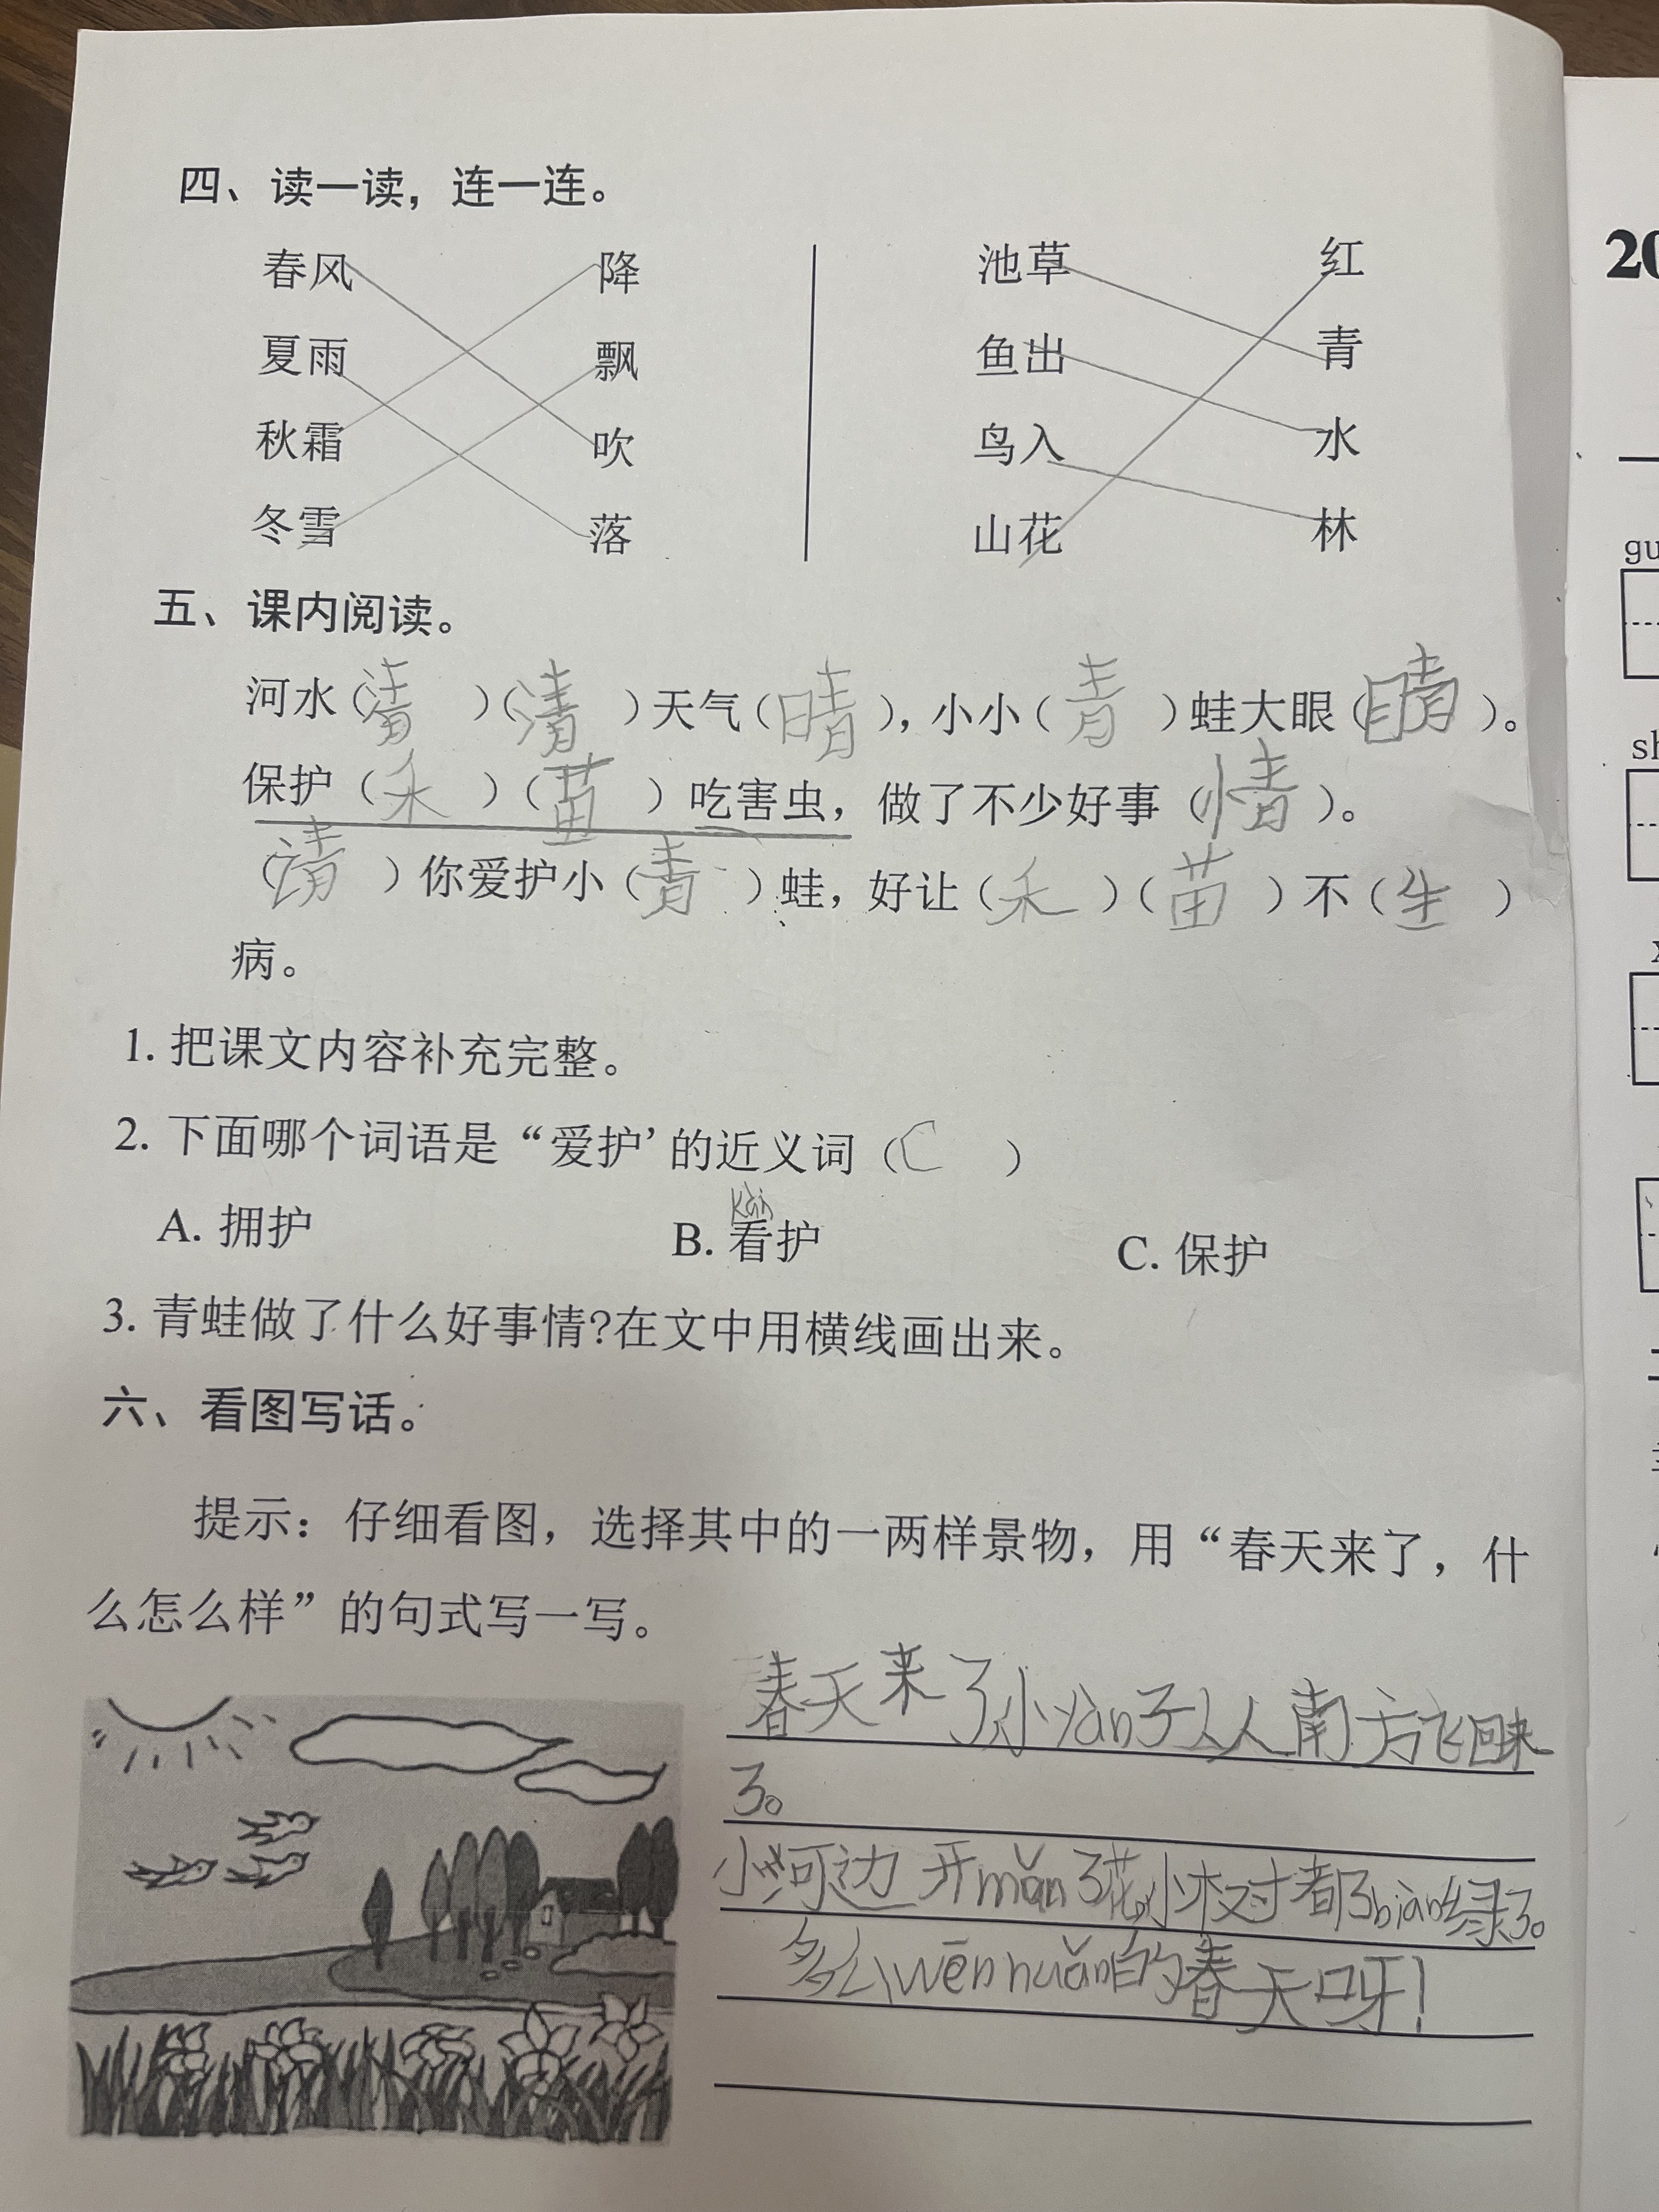 四、读一读，连一连。
春风 降 池草 红
夏雨 飘 鱼出 青
秋霜 吹 鸟入 水
冬雪 落 山花 林
五、课内阅读。
河水（清）（清）天气（晴），小小（青）蛙大眼（睛）。
保护（禾）（苗）吃害虫，做了不少好事（情）。
（请）你爱护小（青）蛙，好让（禾）（苗）不（生）
病。
1. 把课文内容补充完整。
2. 下面哪个词语是“爱护’的近义词（C）
kān
A. 拥护 B. 看护 C. 保护
3. 青蛙做了什么好事情?在文中用横线画出来。
六、看图写话。
提示：仔细看图，选择其中的一两样景物，用“春天来了，什
么怎么样”的句式写一写。
春天来了小yàn子从南方飞回来
了。
小河边开mǎn了花，小树都biàn绿了。
多么wēn nuǎn的春天呀！
20
gu
sh